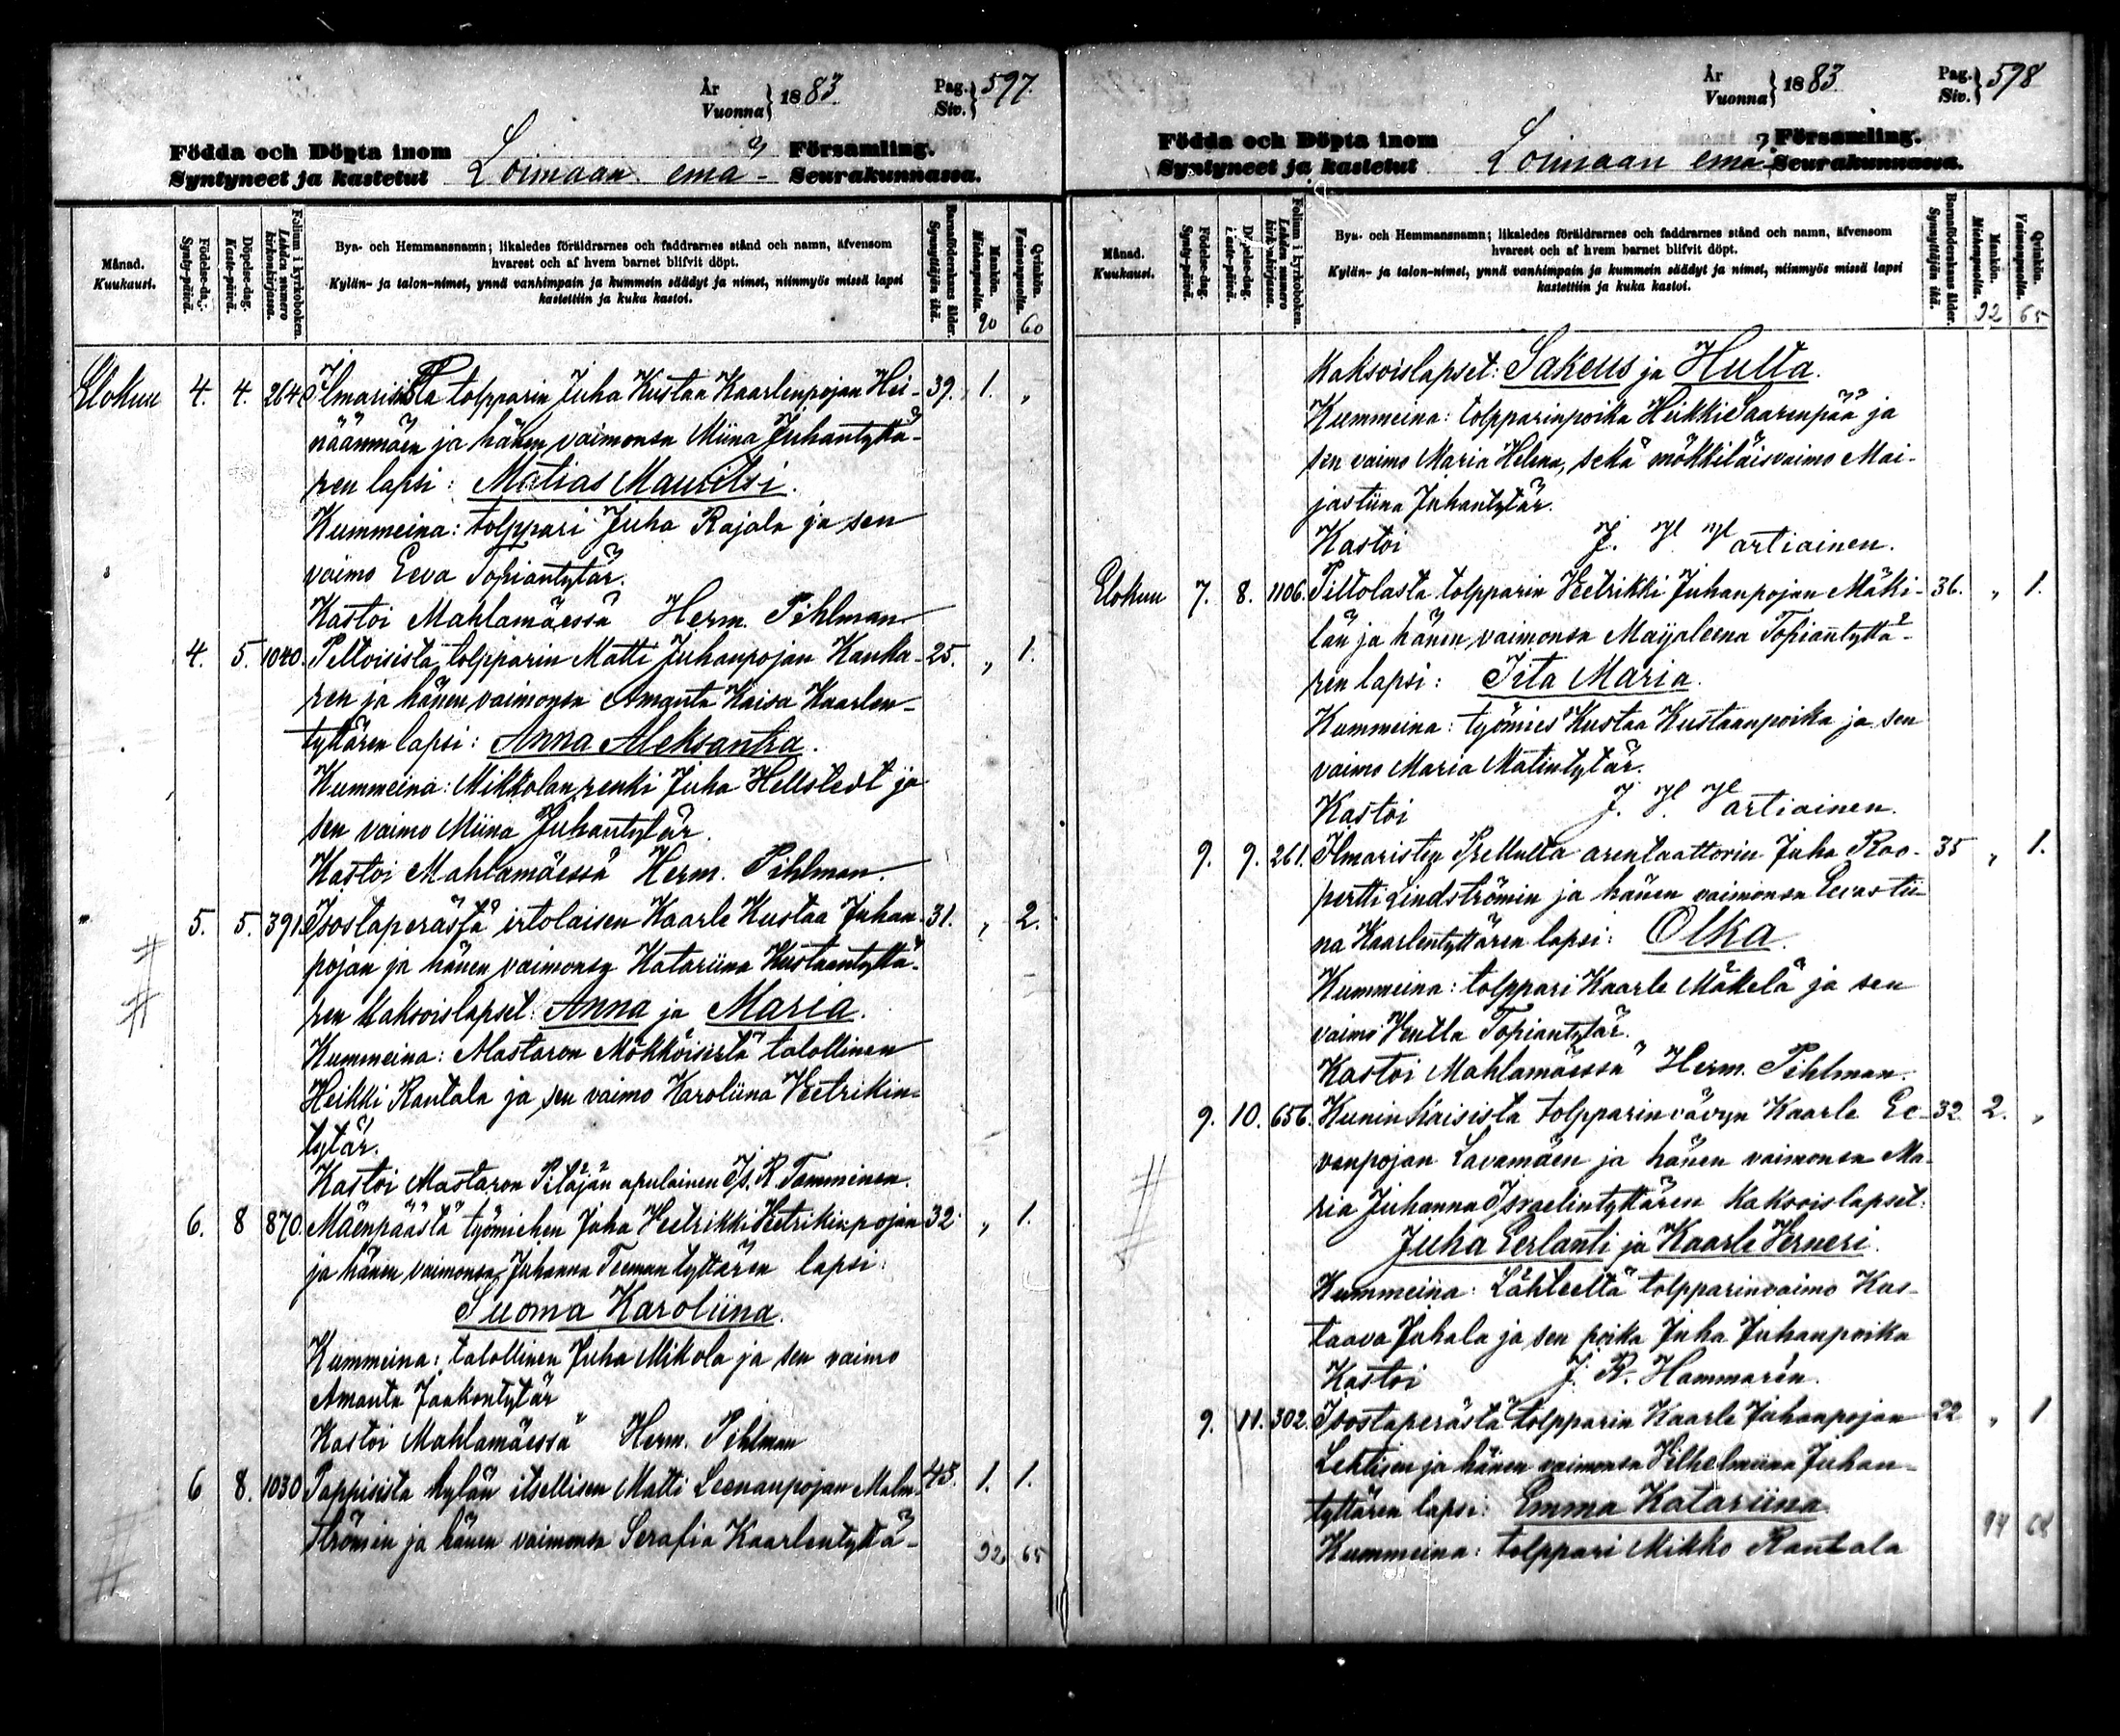 År
Vuonna } 1883. Pag.
Siv. } 597.
Födda och Döpta inom
Syntyneet ja kastetut Loimaan emä- Församling.
Seurakunnassa.
Månad.
Kuukausi.
Födelse-dag.
Synty-päivä.
Döpelse-dag.
Kaste-päivä.
Folium i kyrkoboken.
Lehden numero kirkonkirjassa.
Bya- och Hemmansnamn; likaledes föräldrarnes och faddrarnes stånd och namn, äfvensom
hvarest och af hvem barnet blifvit döpt.
Kylän- ja talon-nimet, ynnä vanhimpain ja kummein säädyt ja nimet, niinmyös missä lapsi
kastettiin ja kuka kastoi.
Barnaföderskans ålder.
Synnyttäjän ikä.
Mankön.
Miehenpuolta. 90
Qvinkön.
Vaimonpuolta. 60
Elokuu 4. 4. 264. Ilmarisista tolpparin Juha Kustaa Kaarlenpojan Hei- 39. 1. "
näänmäen ja hänen vaimonsa Miina Juhantyttä-
ren lapsi: Matias Mauritsi.
Kummeina: tolppari Juha Rajala ja sen
vaimo Eeva Topiantytär.
Kastoi Mahlamäessä Herm. Pihlman
4. 5. 1040. Peltoisista tolpparin Matti Juhanpojan Kanka- 25. " 1.
ren ja hänen vaimonsa Amanta Kaisa Kaarlen-
tyttären lapsi: Anna Aleksantra.
Kummeina: Mikkolan renki Juha Hellstedt ja
sen vaimo Miina Juhantytär.
Kastoi Mahlamäessä Herm. Pihlman.
5. 5. 391. Isostaperästä irtolaisen Kaarle Kustaa Juhan- 31. " 2.
pojan ja hänen vaimonsa Katariina Kustaantyttä-
ren kaksoislapset: Anna ja Maria.
Kummeina: Alastaron Mökköisistä talollinen
Heikki Rautala ja sen vaimo Karoliina Veetrikin-
tytär.
Kastoi Alastaron Pitäjän apulainen Is. R. Tamminen.
6. 8 870. Mäenpäästä työmiehen Juha Veetrikki Vetrikinpojan 32. " 1.
ja hänen vaimonsa Juhanna Teemantyttären lapsi:
Suoma Karoliina.
Kummeina: talollinen Juha Mikola ja sen vaimo
Amanta Jaakontytär
Kastoi Mahlamäessä Herm. Pihlman
6 8. 1030 Pappisista kylän itsellisen Matti Leenanpojan Malm- 43. 1. 1.
strömin ja hänen vaimonsa Serafia Kaarlentyttä-
92. 65
År
Vuonna } 1883. Pag.
Siv. } 598
Födda och Döpta inom
Syntyneet ja kastetut Loimaan emä- Församling.
Seurakunnassa.
Månad.
Kuukausi.
Födelse-dag.
Synty-päivä.
Döpelse-dag.
Kaste-päivä.
Folium i kyrkoboken.
Lehden numero kirkonkirjassa.
Bya- och Hemmansnamn; likaledes föräldrarnes och faddrarnes stånd och namn, äfvensom
hvarest och af hvem barnet blifvit döpt.
Kylän- ja talon-nimet, ynnä vanhimpain ja kummein säädyt ja nimet, niinmyös missä lapsi
kastettiin ja kuka kastoi.
Barnaföderskans ålder.
Synnyttäjän ikä.
Mankön.
Miehenpuolta. 92
Qvinkön.
Vaimonpuolta. 65
kaksoislapset: Sakeus ja Hulta.
Kummeina: tolpparinpoika Heikki Saarenpää ja
sen vaimo Maria Helena, sekä mökkiläisvaimo Mai-
jastiina Juhantytär.
Kastoi J. H. Hartiainen.
Elokuu 7. 8. 1106. Piltolasta tolpparin Veetrikki Juhanpojan Mäki- 36. " 1.
län ja hänen vaimonsa Maijaleena Topiantyttä-
ren lapsi: Iita Maria.
Kummeina: työmies Kustaa Kustaanpoika ja sen
vaimo Maria Matintytär.
Kastoi J. H. Hartiainen.
9. 9. 261. Ilmaristen Prellulta arentaattorin Juha Roo- 35 " 1.
pertti Lindströmin ja hänen vaimonsa Eevastii-
na Kaarlentyttären lapsi: Olka.
Kummeina: tolppari Kaarle Mäkelä ja sen
vaimo Venlla Topiantytär.
Kastoi Mahlamäessä Herm. Pihlman.
9. 10. 656. Kuninkaisista tolpparin vävyn Kaarle Ee- 32 2. "
vanpojan Lavamäen ja hänen vaimonsa Ma-
ria Juhanna Israelintyttären kaksoislapset:
Juha Eerlanti ja Kaarle Verneri.
Kummeina: Lähteeltä tolpparinvaimo Kus-
taava Juhala ja sen poika Juha Juhanpoika
Kastoi J. R. Hammarén.
9. 11. 302. Isostaperästä tolpparin Kaarle Juhanpojan 22 " 1
Lehtisen ja hänen vaimonsa Vilhelmiina Juhan-
tyttären lapsi: Emma Katariina.
Kummeina: tolppari Mikko Rautala
94 68